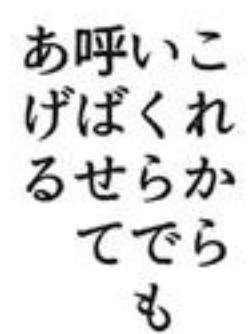 これから
いくらでも
呼ばせて
あげる